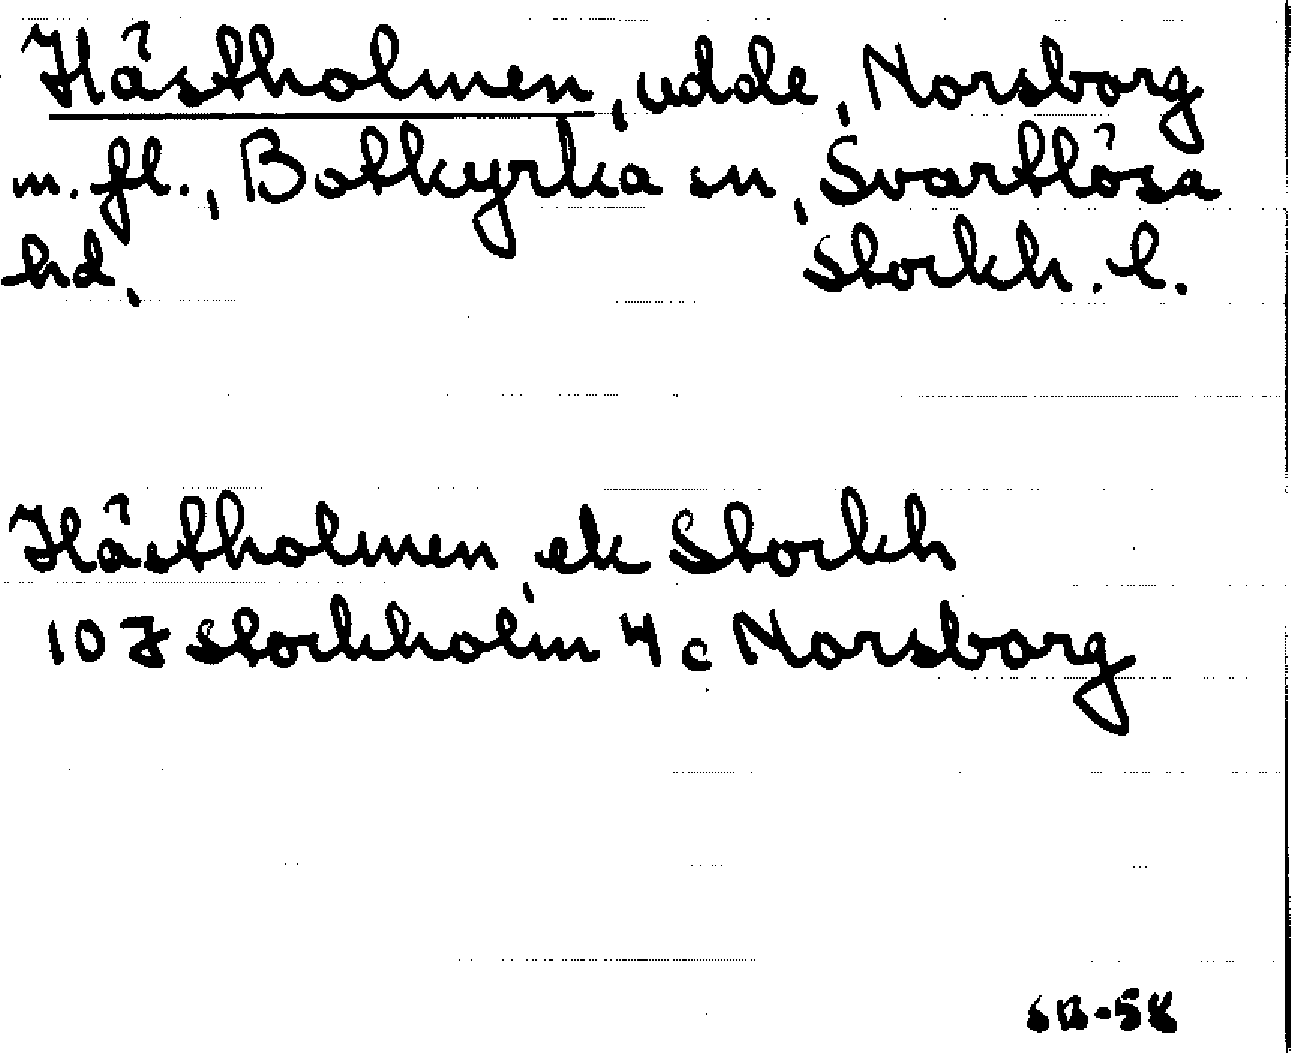 Hästholmen, udde, Norsborg
m. fl., Botkyrka sn, Svartlösa
hd, Stockh. l.
Hästholmen, ek Stockh
10 I Stockholm 4 c Norsborg